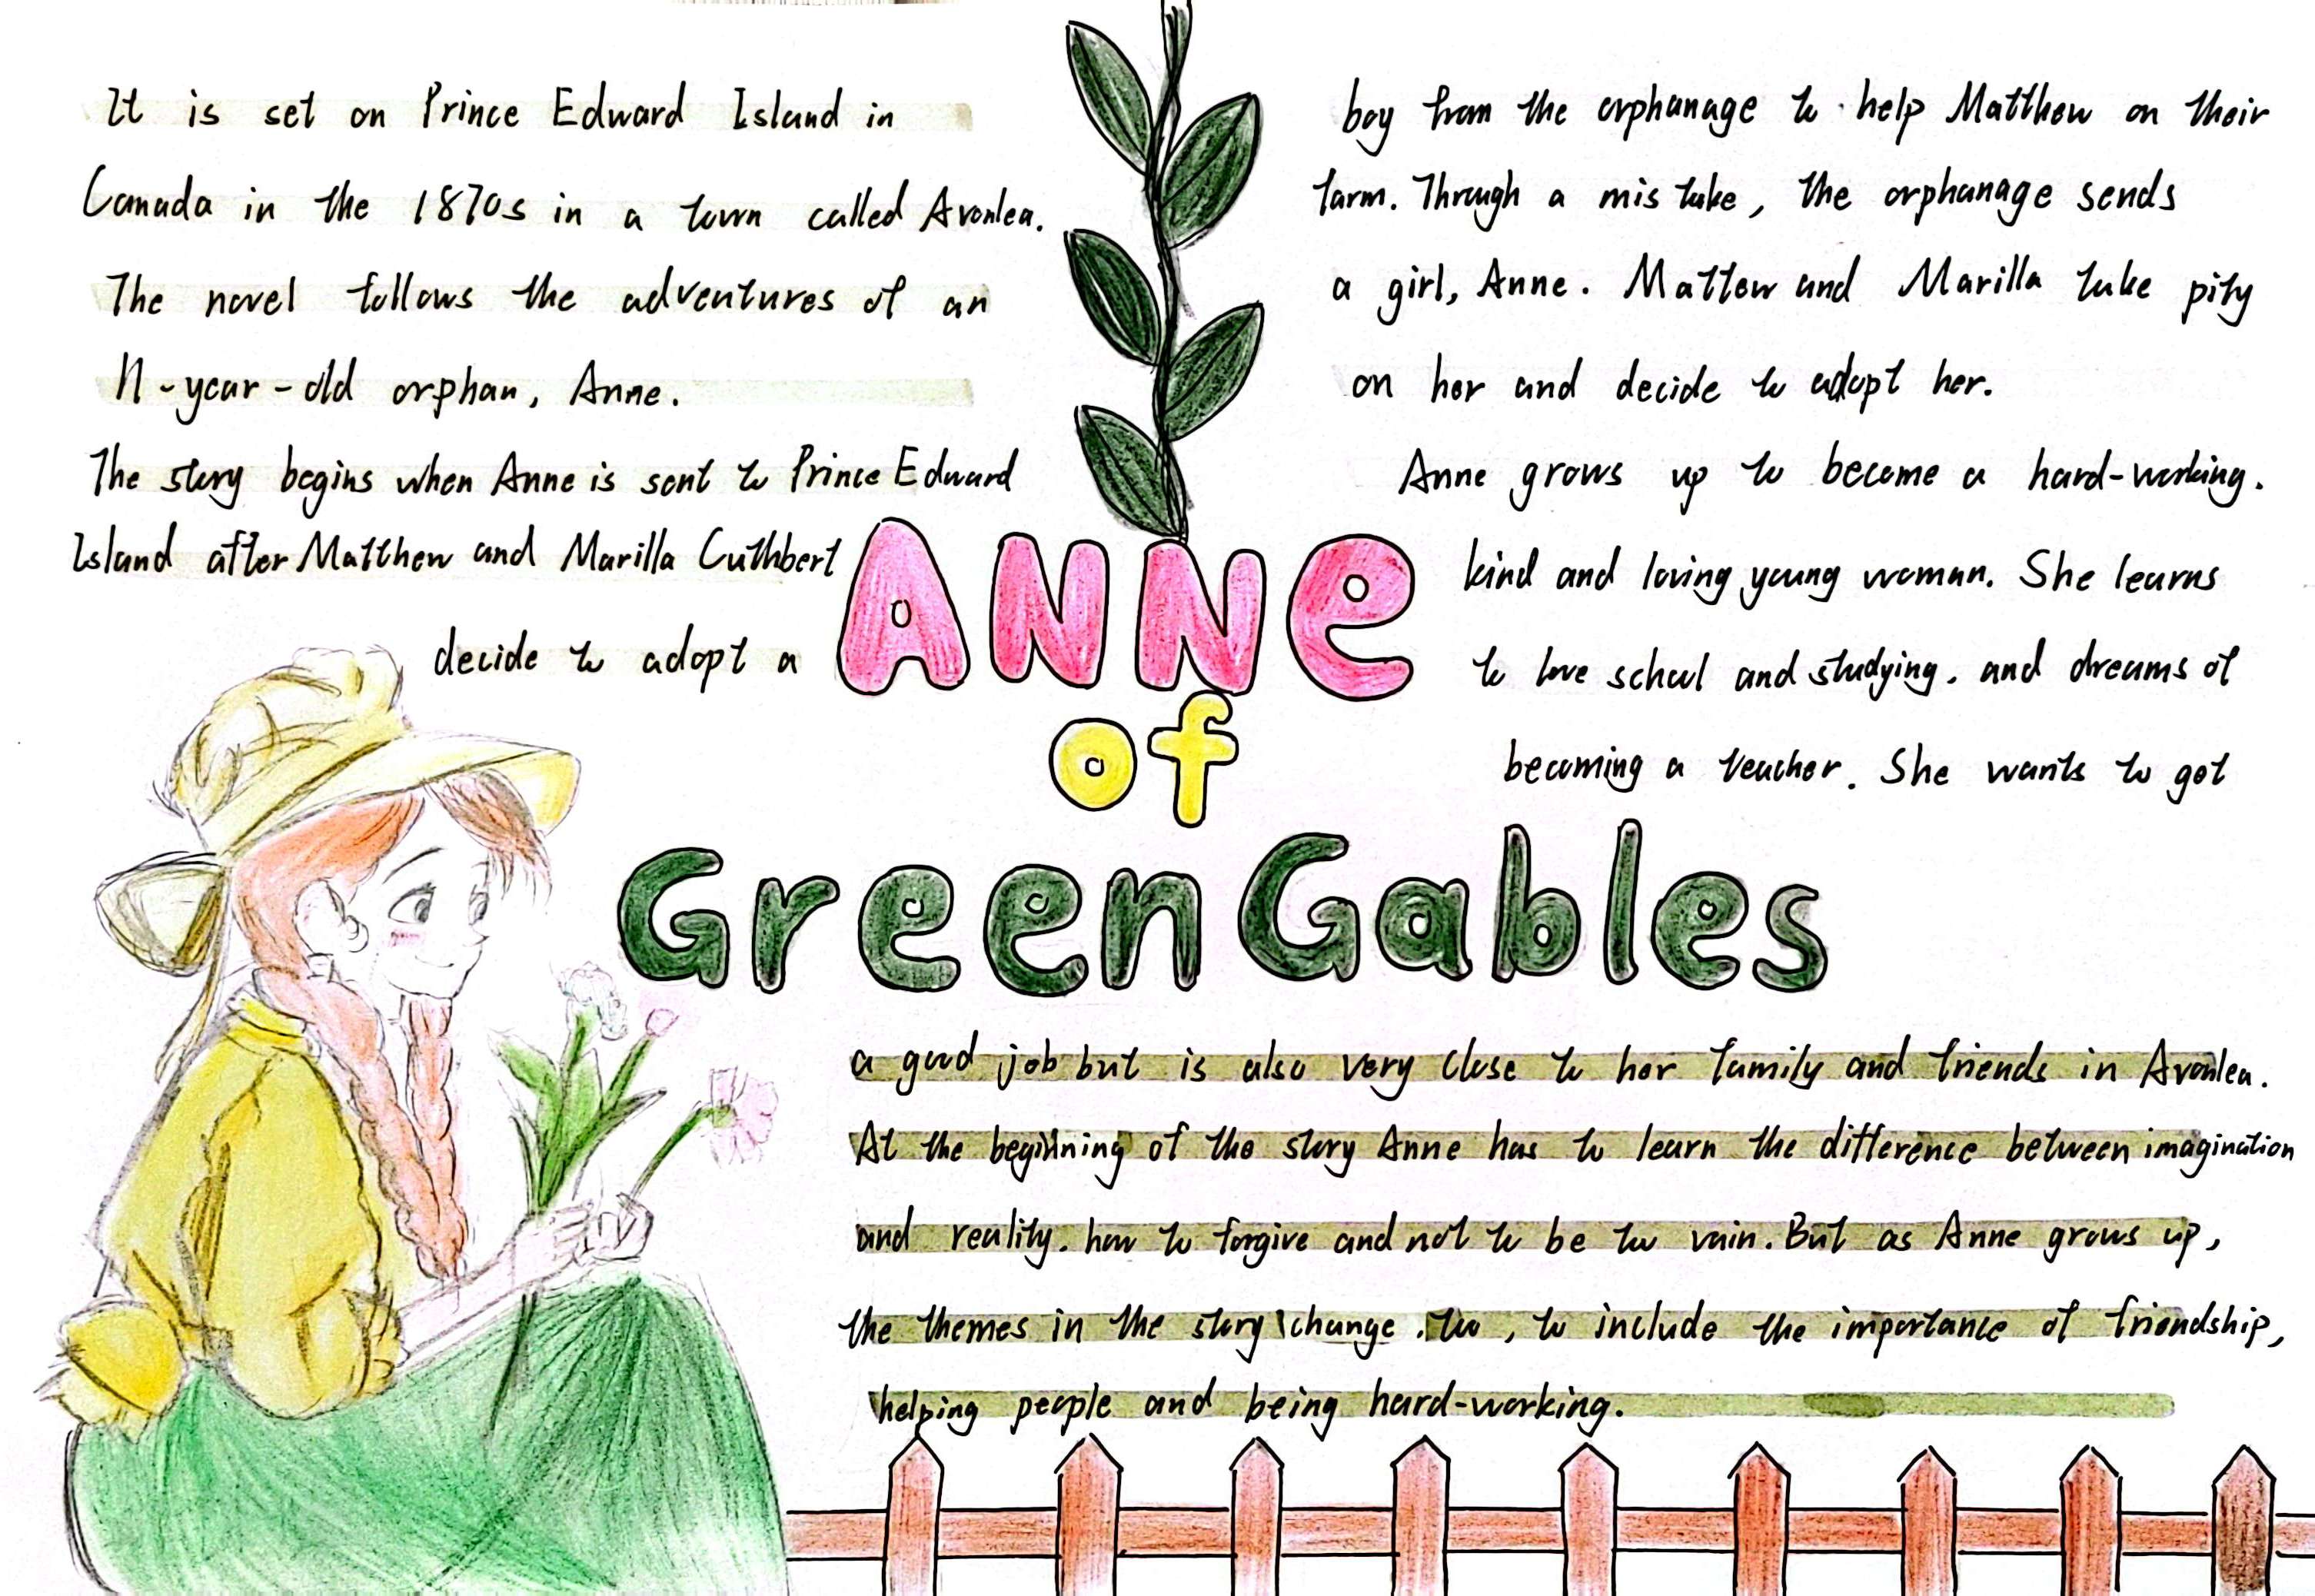 It is set on Prince Edward Island in
Canada in the 1870s in a town called Avonlea.
The novel follows the adventures of an
11-year-old orphan, Anne.
The story begins when Anne is sent to Prince Edward
Island after Matthew and Marilla Cuthbert
decide to adopt a
boy from the orphanage to help Matthew on their
farm. Through a mistake, the orphanage sends
a girl, Anne. Mattew and Marilla take pity
on her and decide to adopt her.
Anne grows up to become a hard-working.
kind and loving young woman. She learns
to love school and studying. and dreams of
becoming a teacher. She wants to get
ANNe
of
Green Gables
a good job but is also very close to her family and friends in Avonlea.
At the beginning of the story Anne has to learn the difference between imagination
and reality. how to forgive and not to be too vain. But as Anne grows up,
the themes in the story change .too, to include the importance of friendship,
helping people and being hard-working.